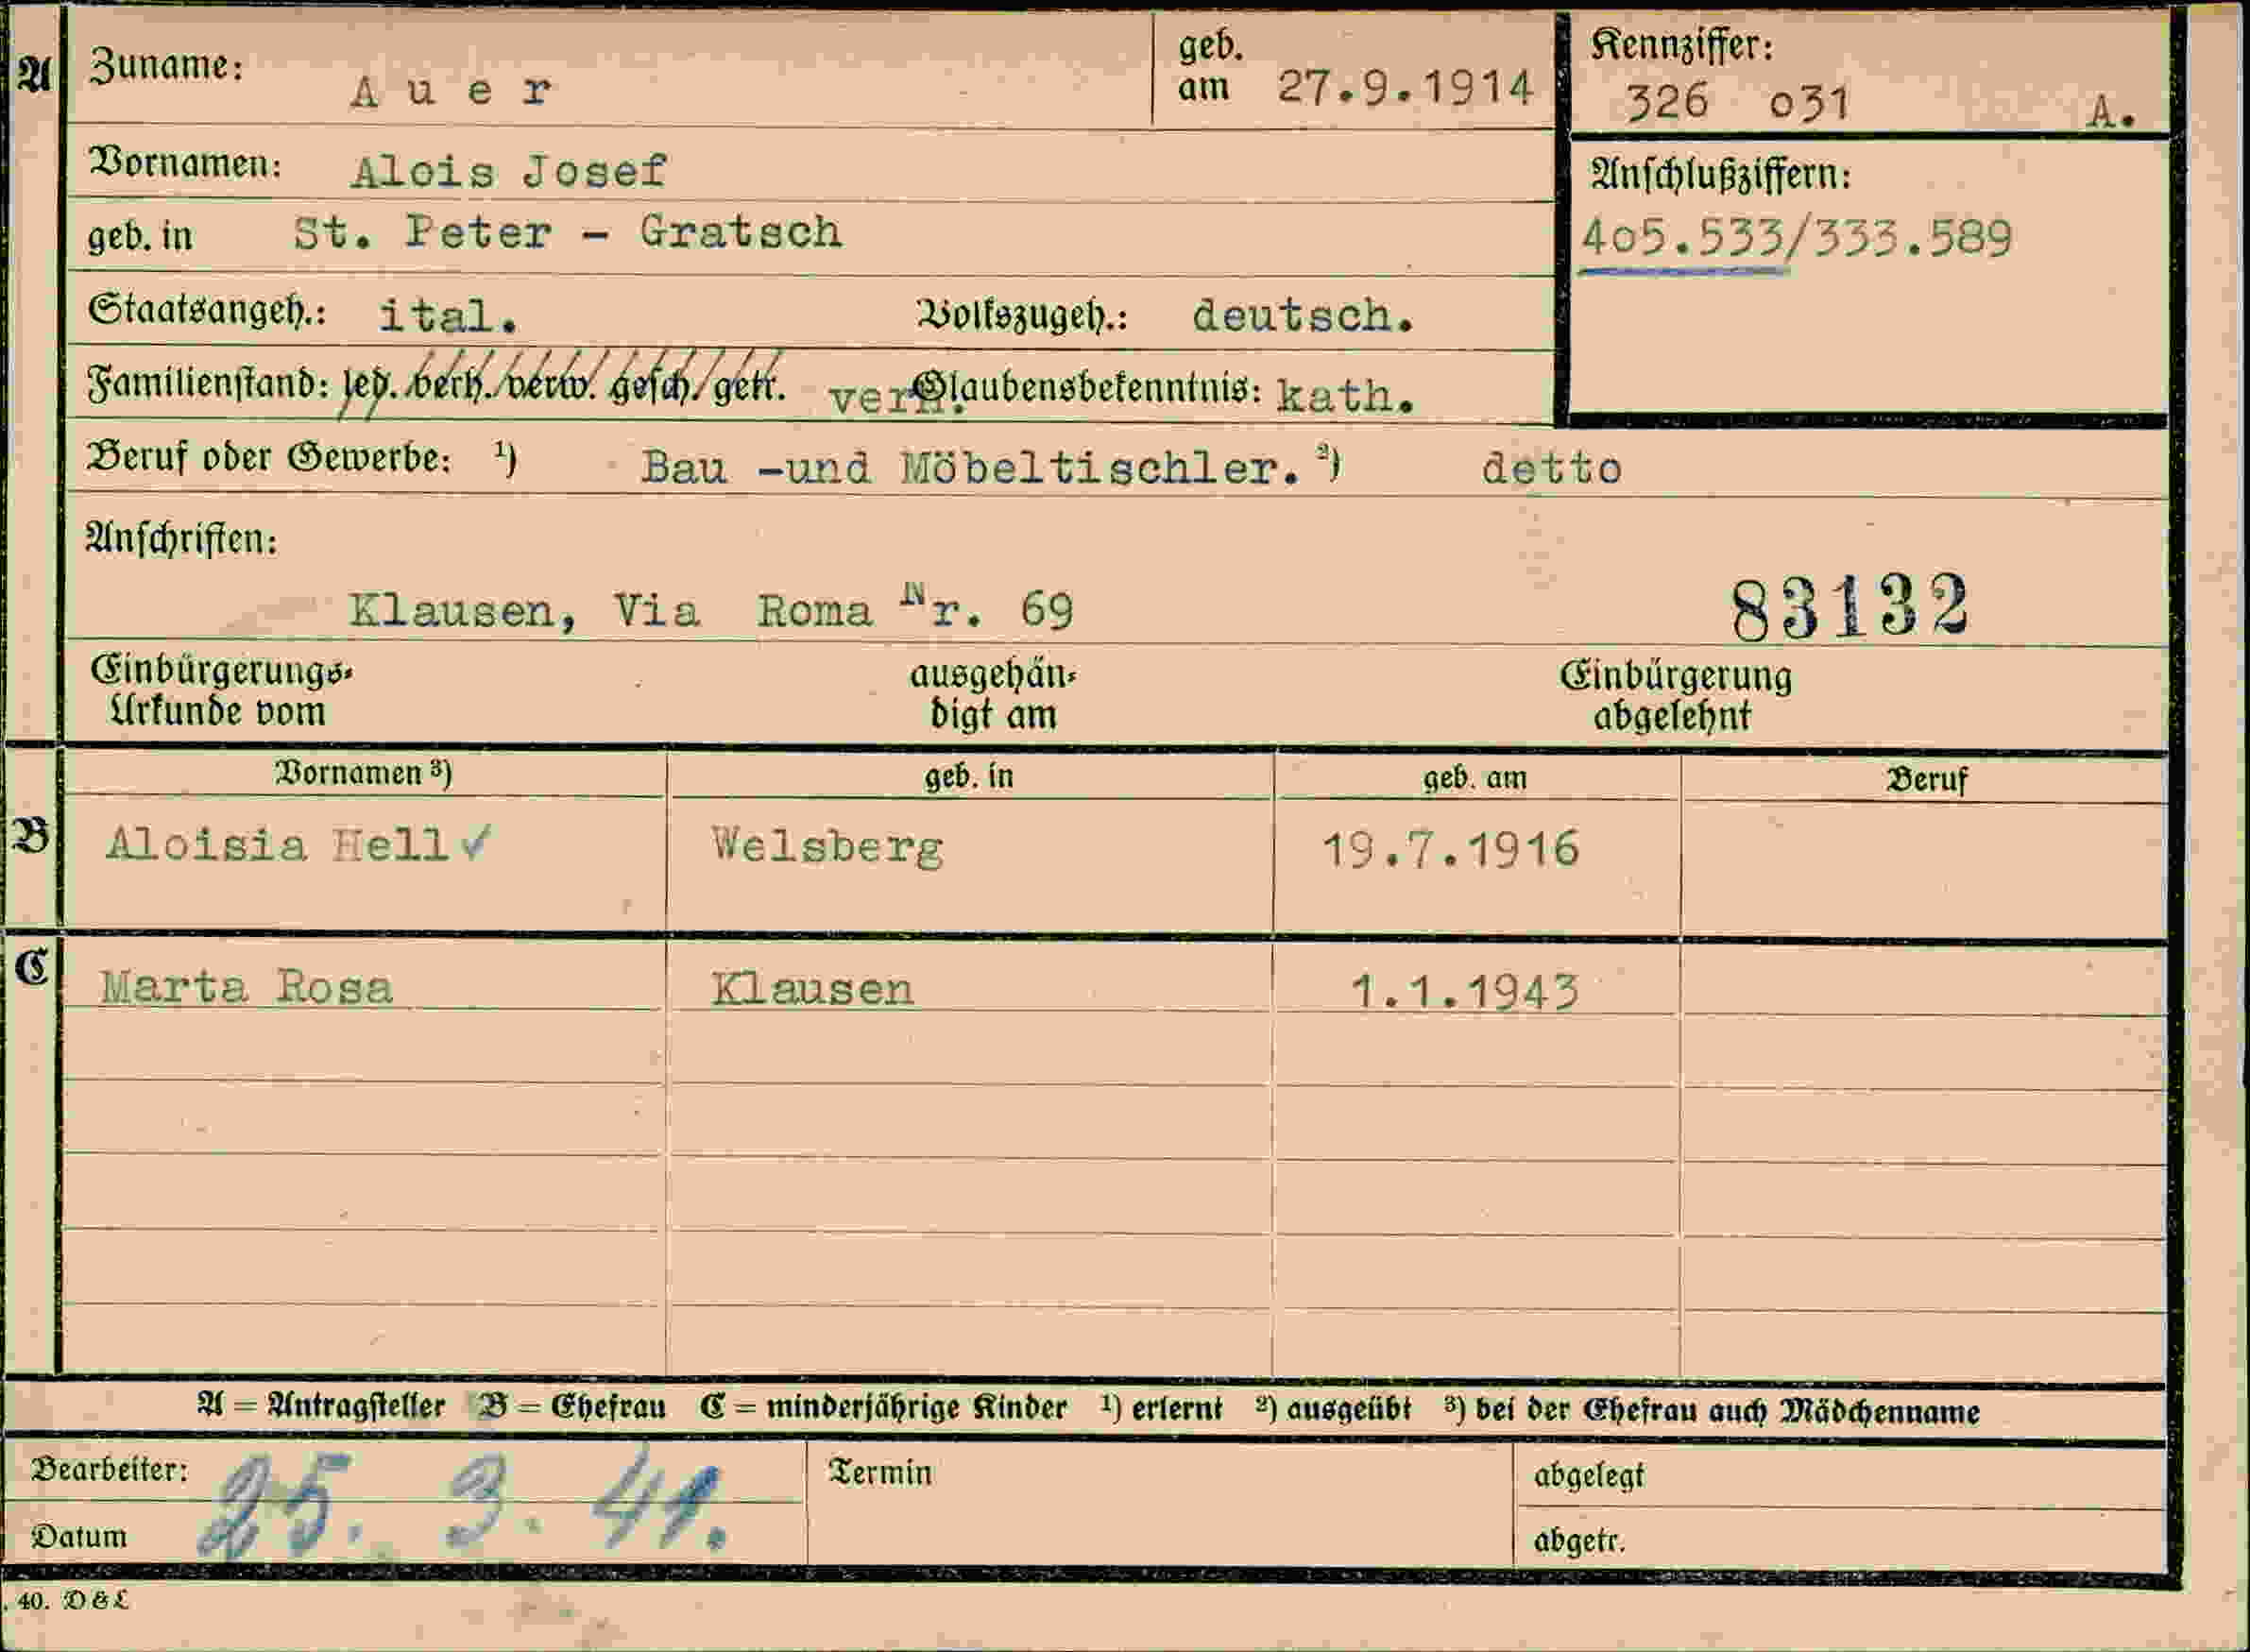 A Zuname: Auer geb. am 27.9.1914 Kennziffer: 326 031 A.
Vornamen: Alois Josef Anschlußziffern:
geb. in St. Peter - Gratsch 405.533/333.589
Staatsangeh.: ital. Volkszugeh.: deutsch.
Familienstand: led. verh. verw. gesch. getr. verh. Glaubensbekenntnis: kath.
Beruf oder Gewerbe: ¹) Bau -und Möbeltischler. ²) detto
Anschriften:
Klausen, Via Roma Nr. 69 83132
Einbürgerungs- ausgehän- Einbürgerung
Urkunde vom digt am abgelehnt
Vornamen ³) geb. in geb. am Beruf
B Aloisia Hell ✓ Welsberg 19.7.1916
C Marta Rosa Klausen 1.1.1943
A = Antragsteller B = Ehefrau C = minderjährige Kinder ¹) erlernt ²) ausgeübt ³) bei der Ehefrau auch Mädchenname
Bearbeiter: 25. 3. 41. Termin abgelegt
Datum abgetr.
. 40. D & L